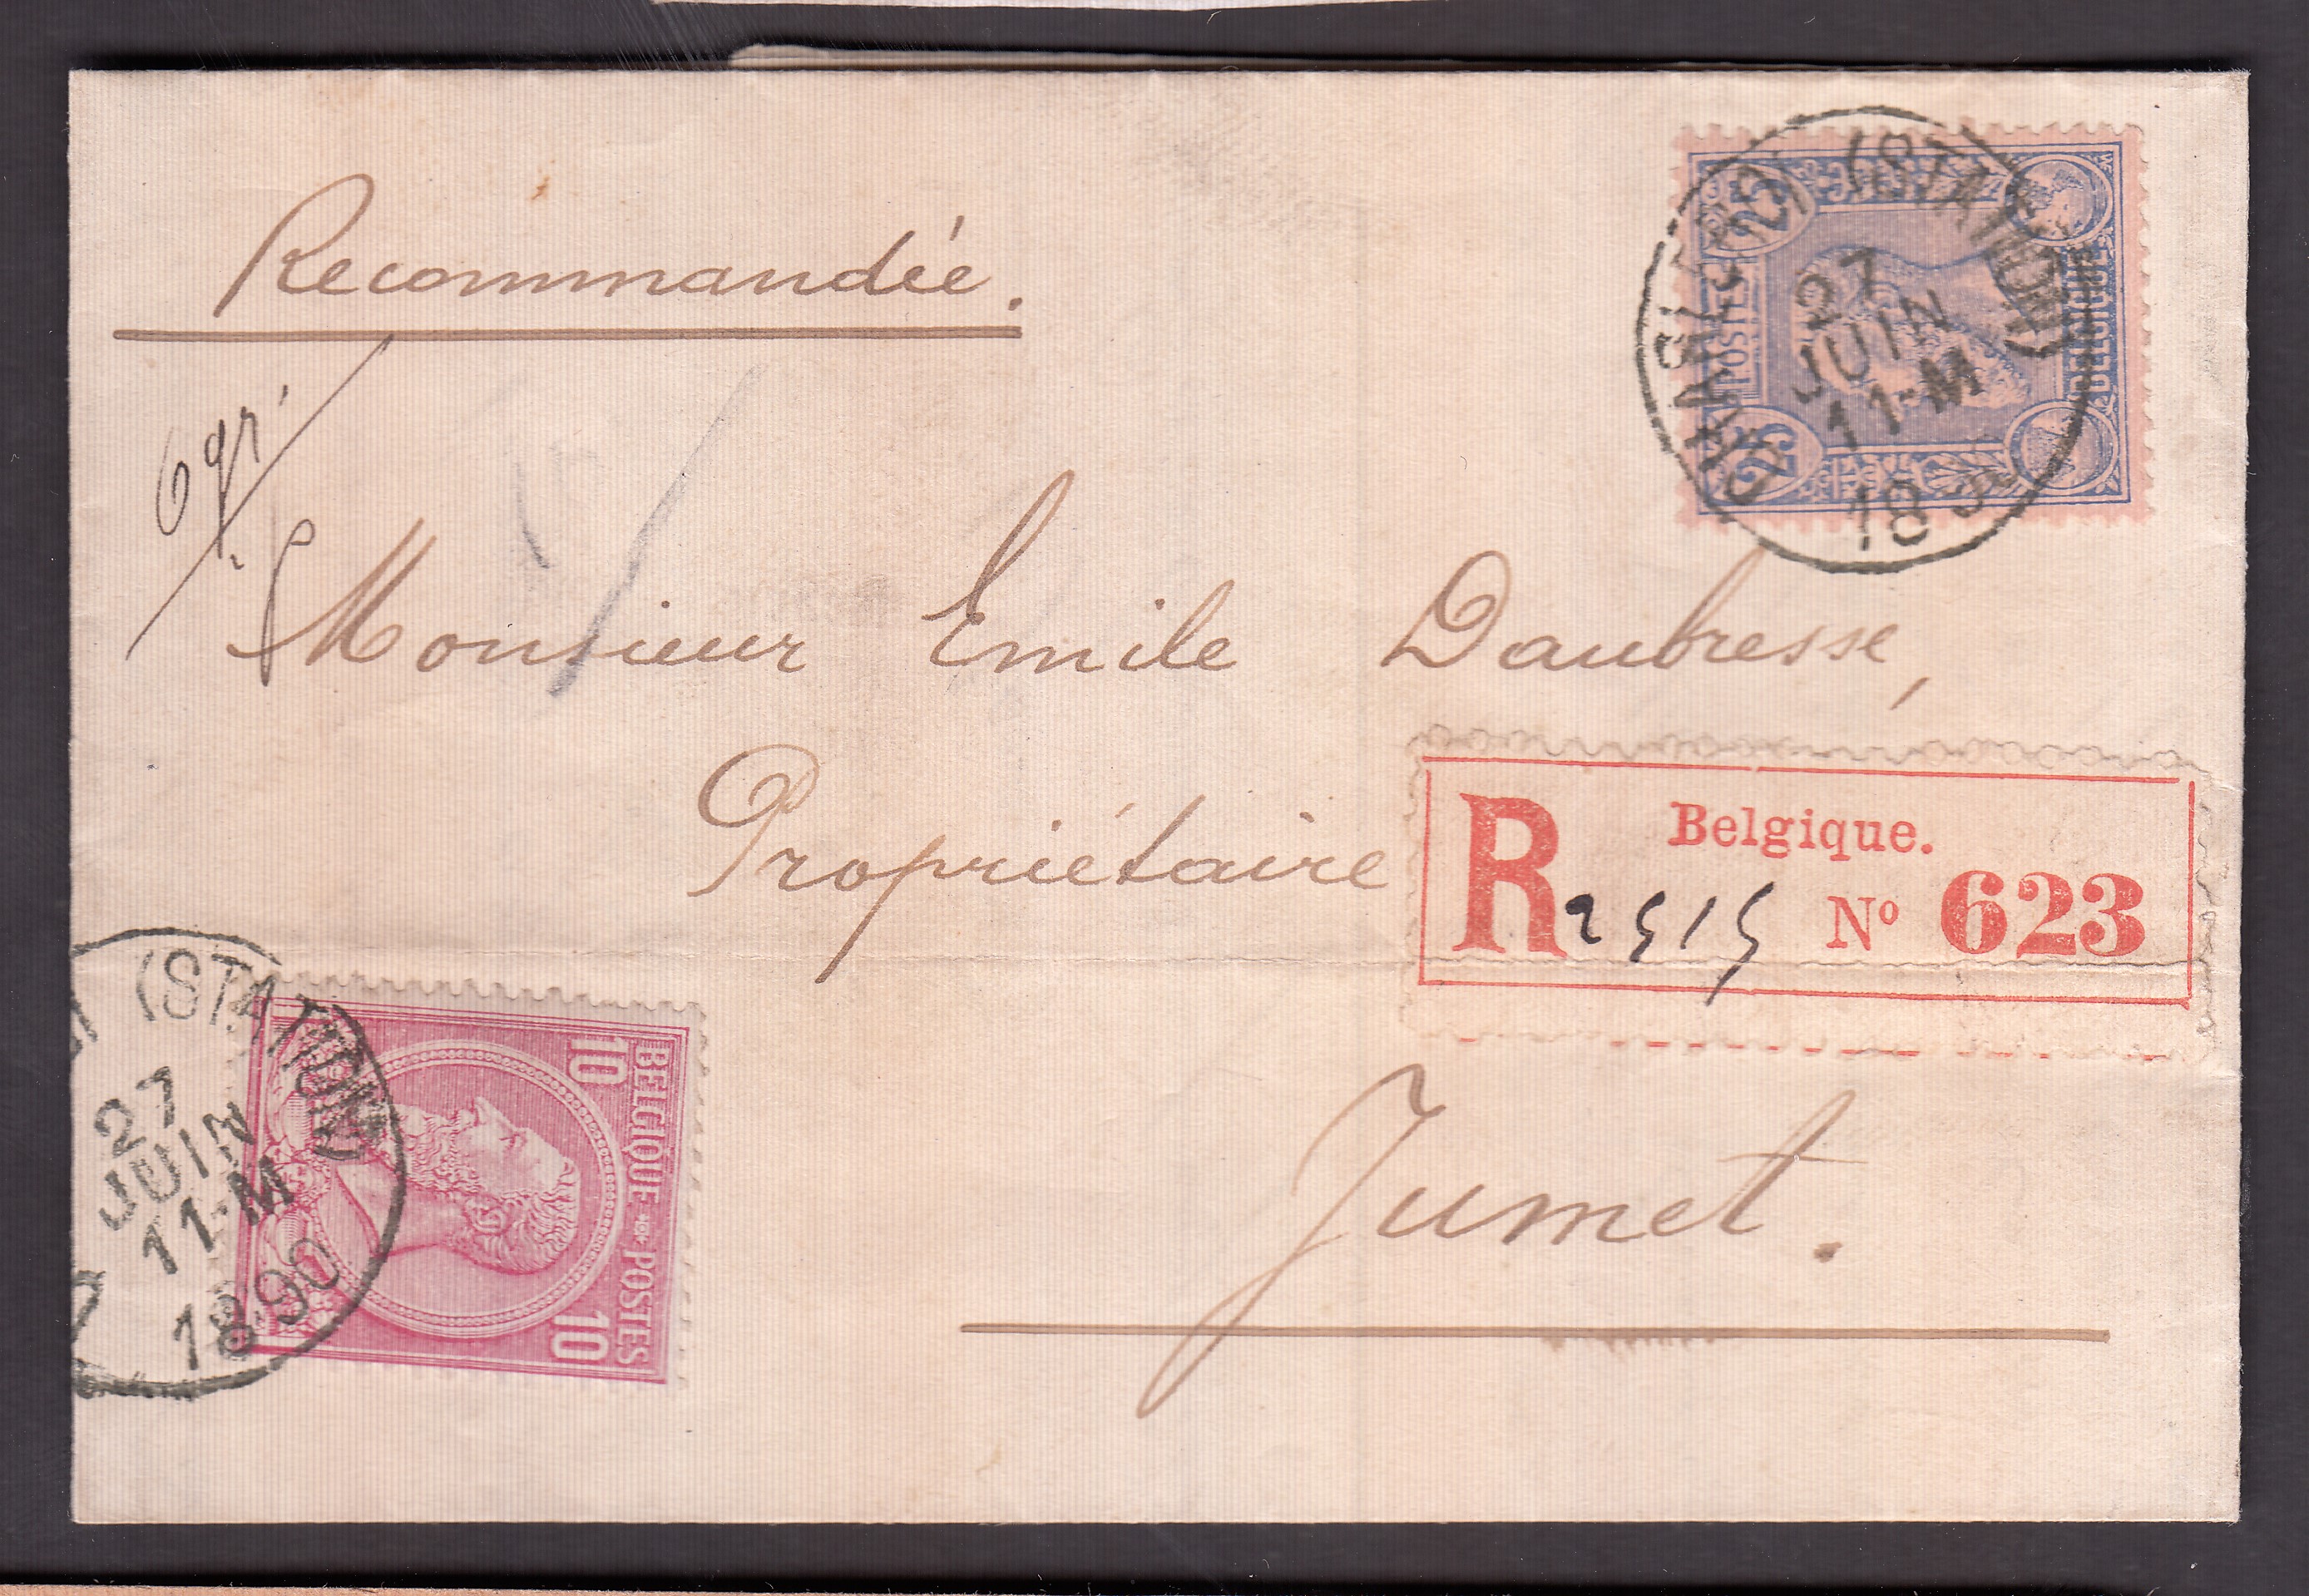 Recommandée.
6 gr.
Monsieur Emile Daubresse,
Propriétaire
Jumet.
R Belgique.
2515 Nº 623
25 CENTIMES 25
POSTES
BELGIQUE
CHARLEROI (STATION)
27
JUIN
11-M
18
10 BELGIQUE POSTES 10
(STATION)
27
JUIN
11-M
1890